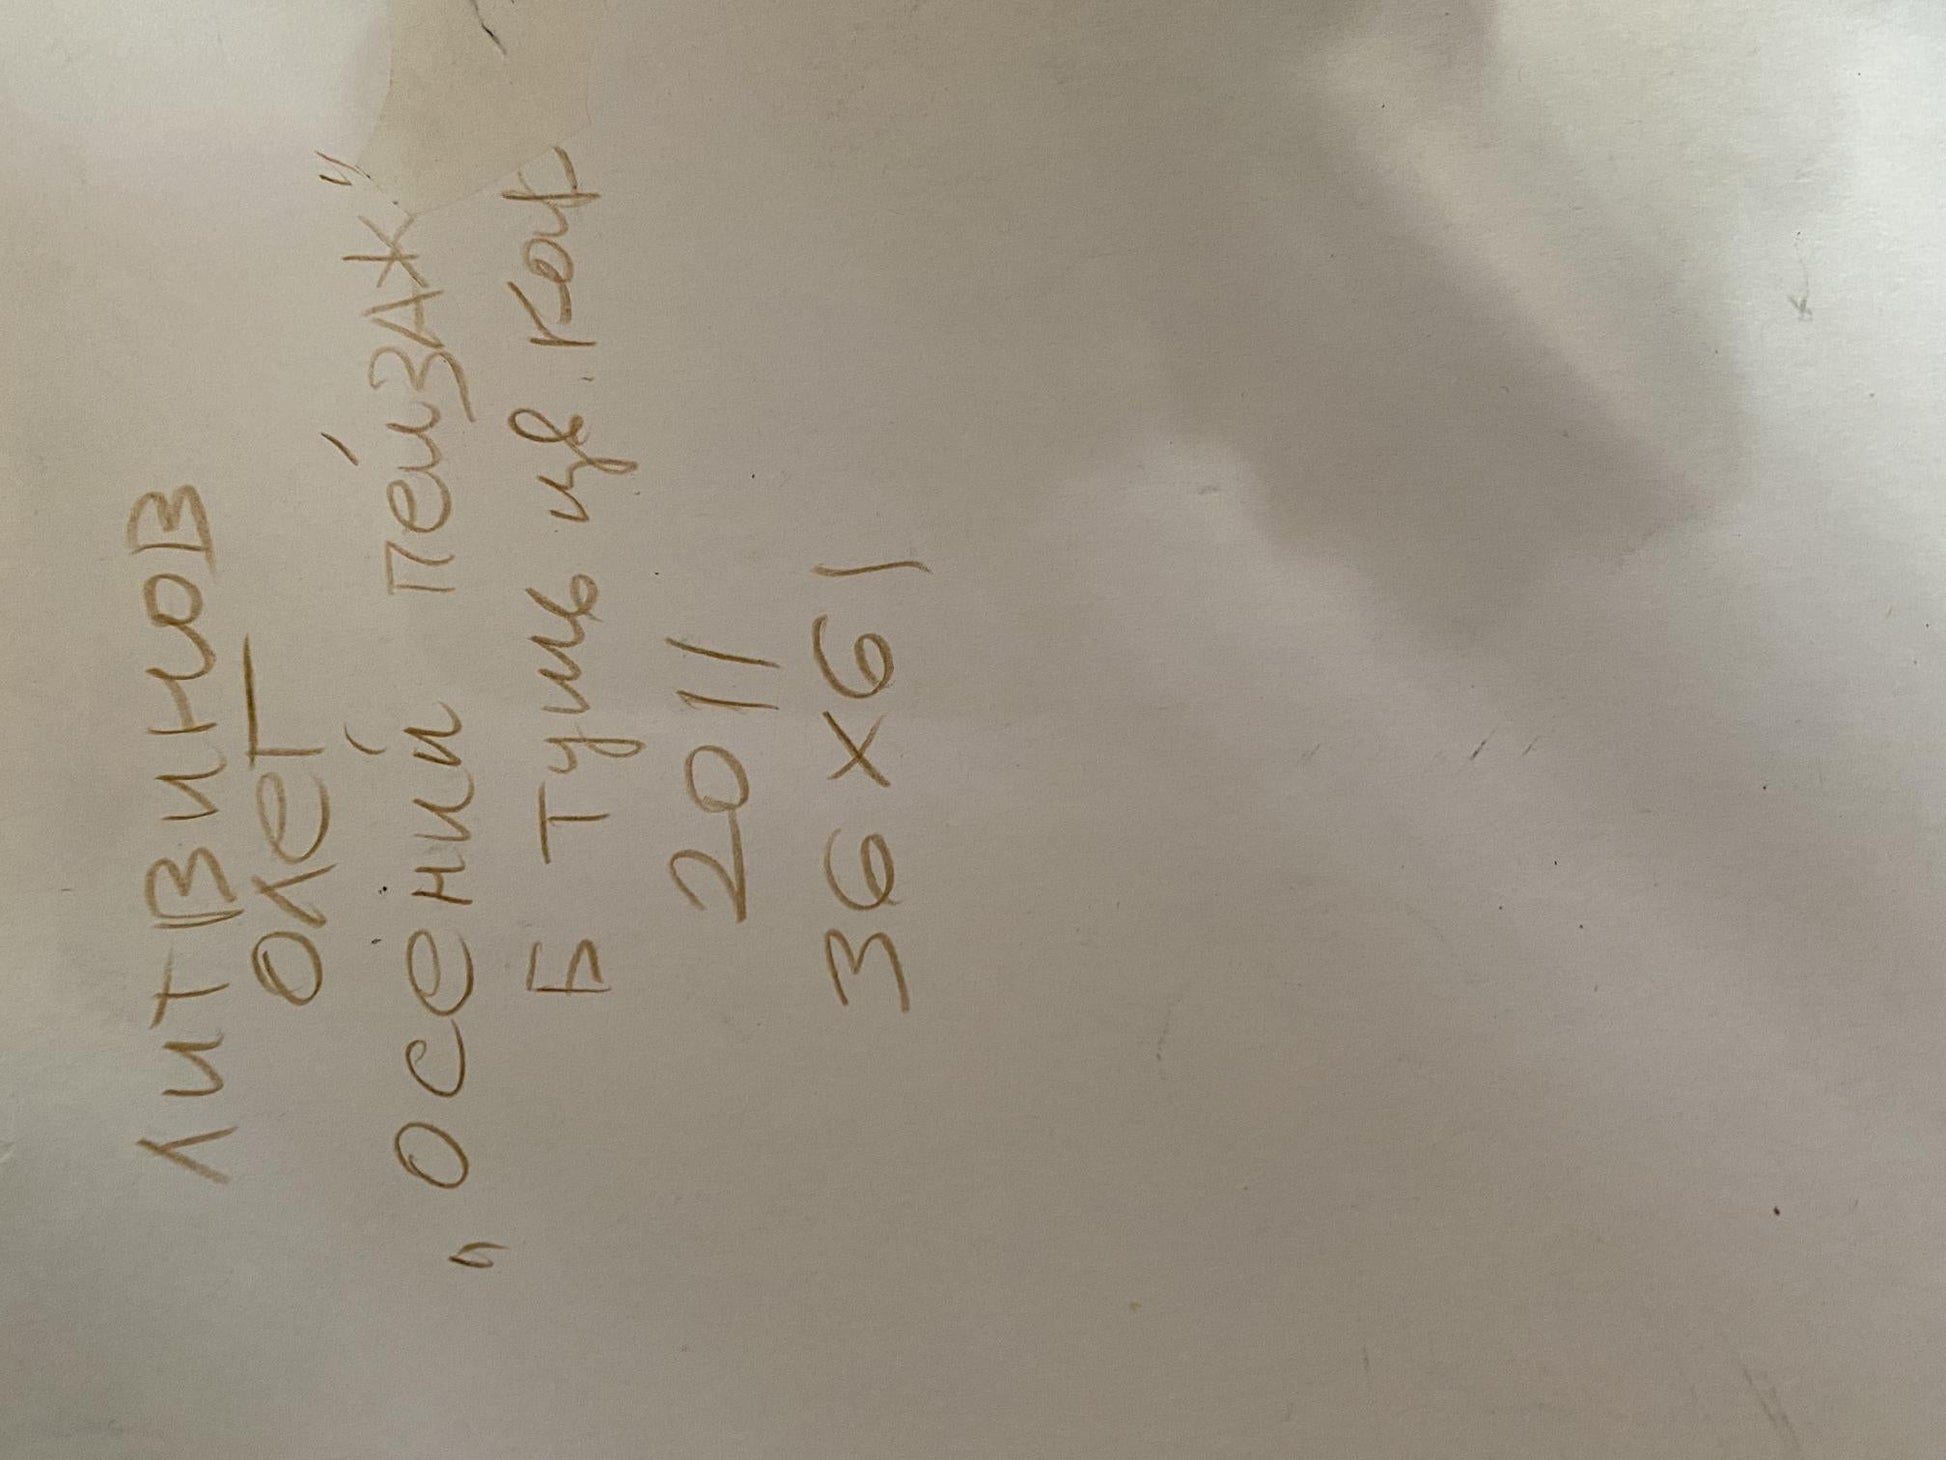 ЛИТВИНОВ
ОЛЕГ
"ОСЕНИЙ ПЕЙЗАЖ"
Б ТУШЬ ЦВ. КАР
2011
36 х 61